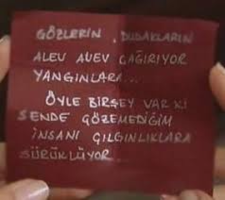 GÖZLERİN, DUDAKLARIN
ALEV ALEV ÇAĞIRIYOR
YANGINLARA...
ÖYLE BİRŞEY VAR Kİ
SENDE ÇÖZEMEDİĞİM
İNSANI ÇILGINLIKLARA
SÜRÜKLÜYOR